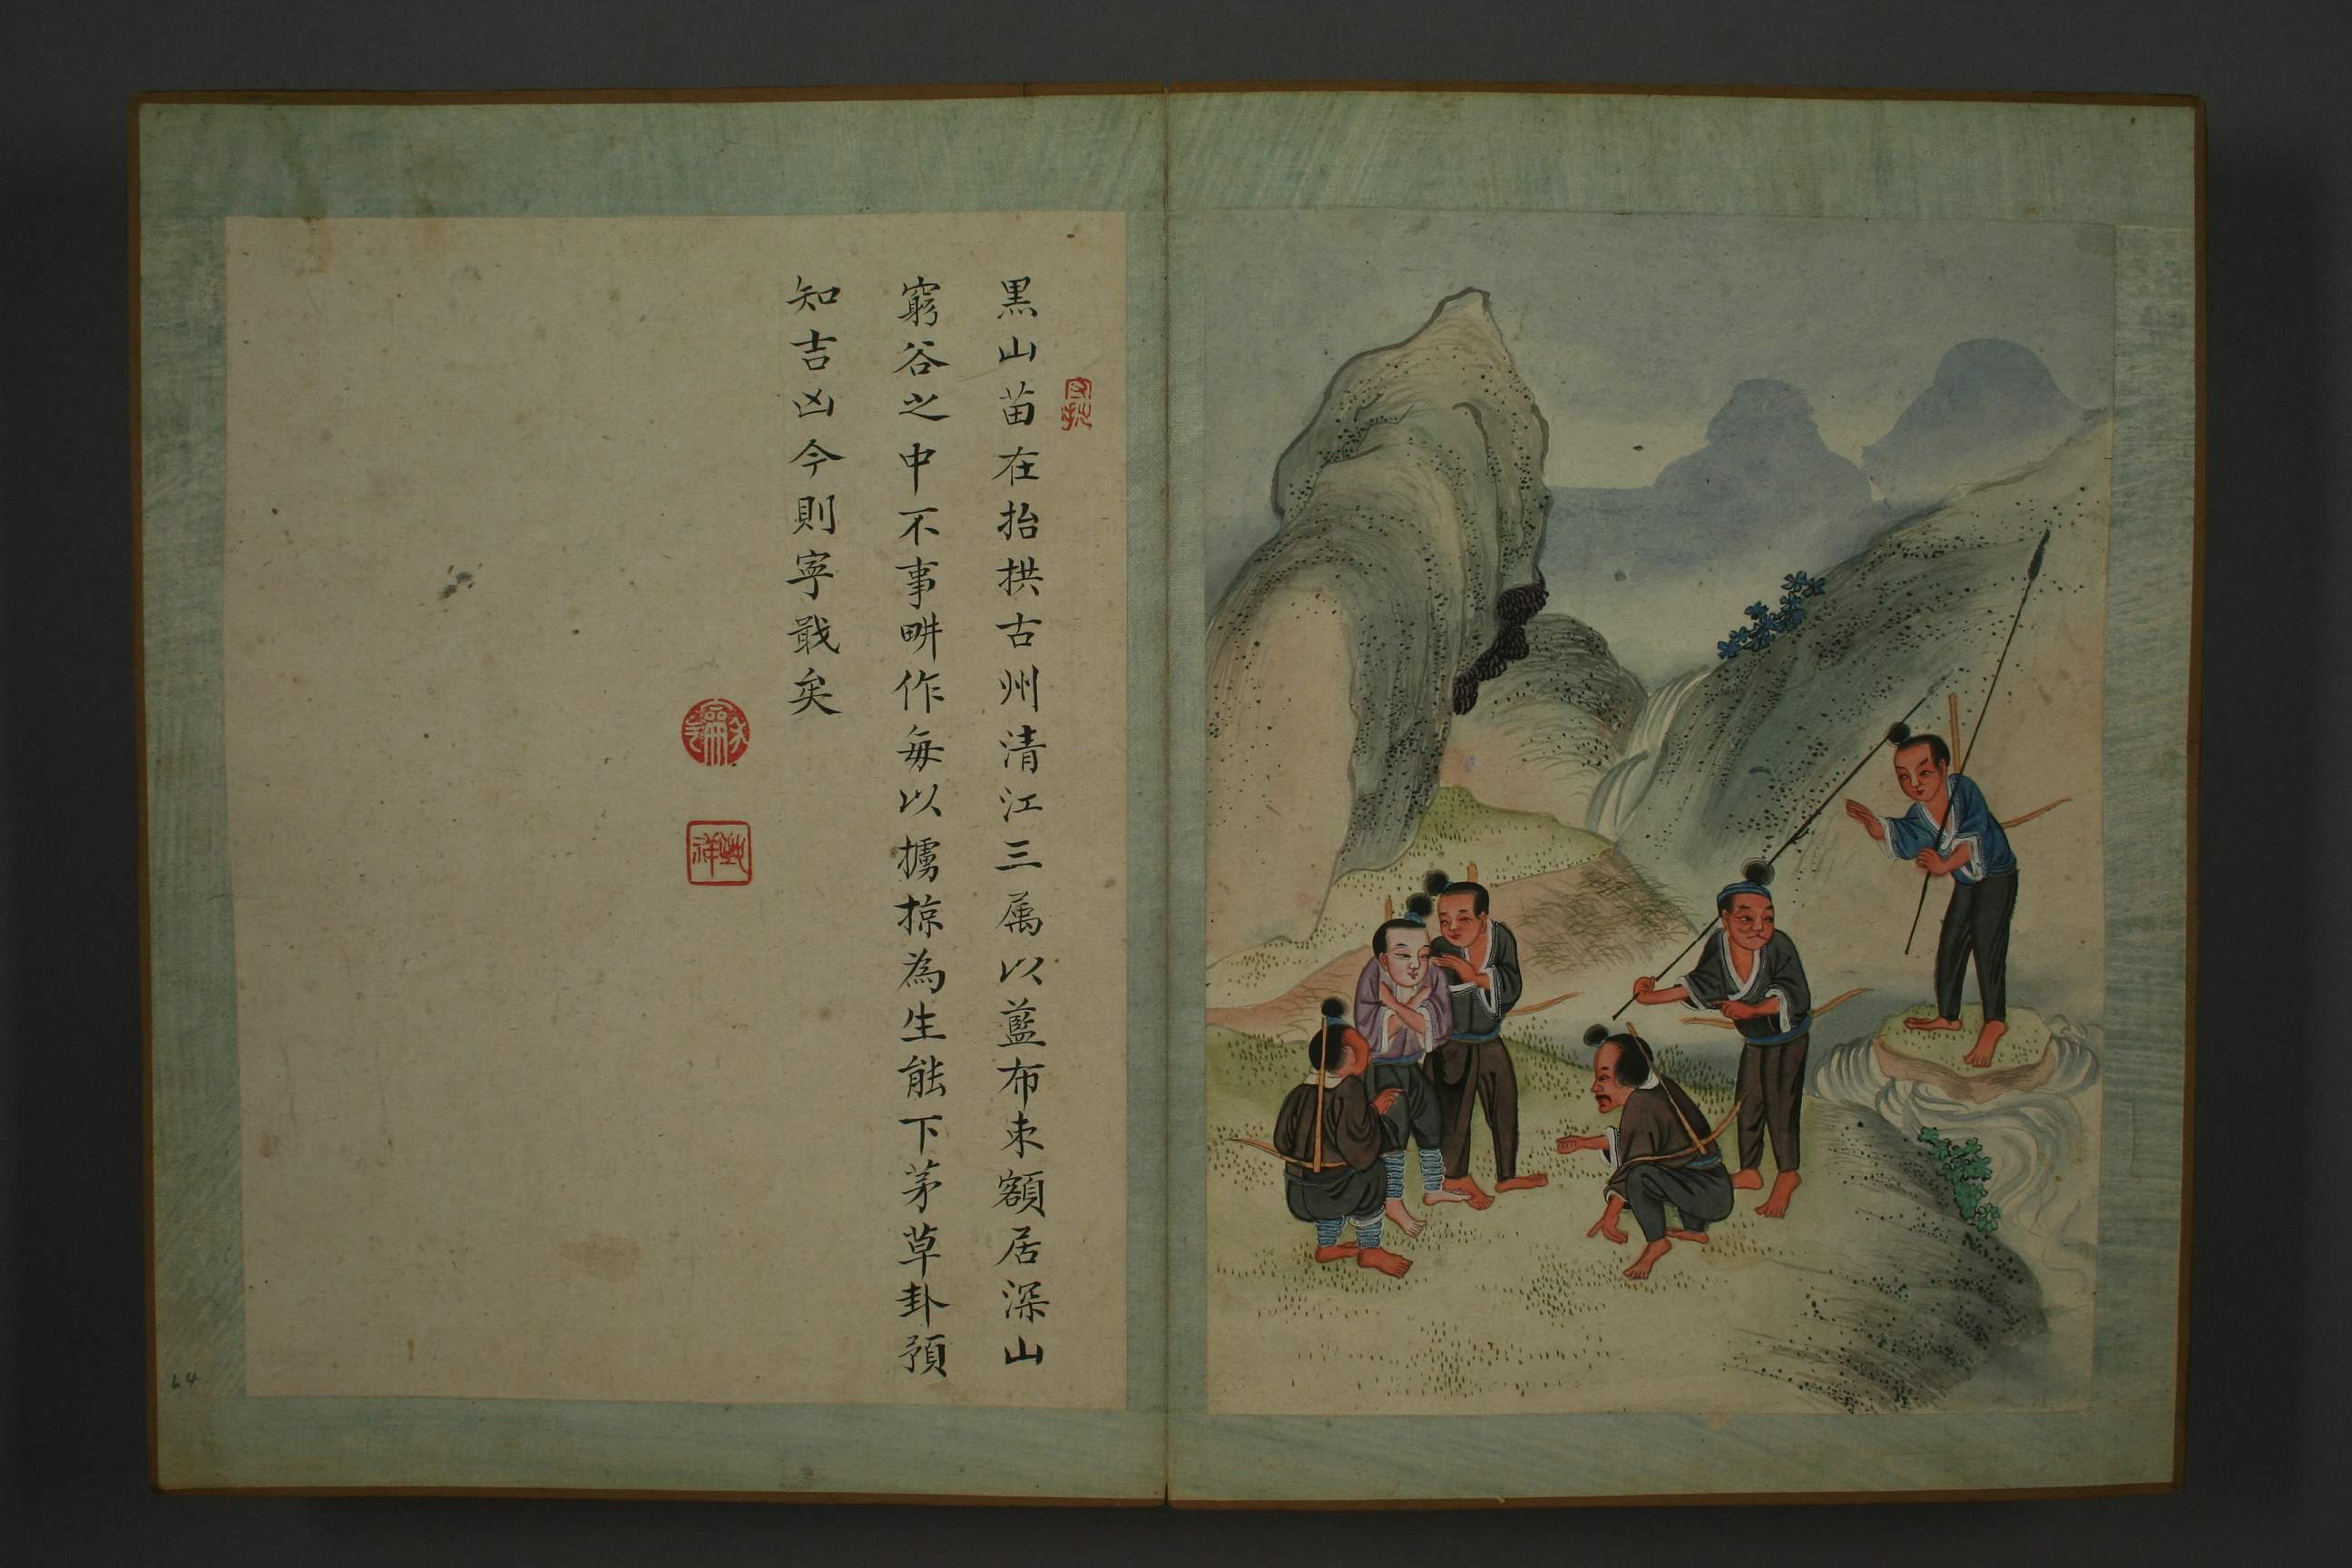 黑山苗在抬拱古州清江三属以藍布束額居深山
窮谷之中不事畊作每以擄掠為生能下茅草卦預
知吉凶今則寧戢矣
64